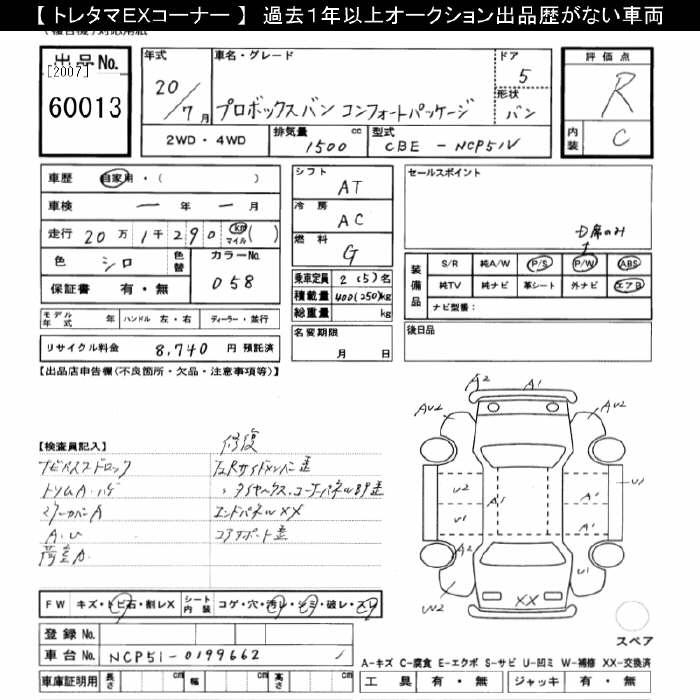 【 トレタマEXコーナー 】 過去1年以上オークション出品歴がない車両
出品No.
[2007]
60013
年式
20/7月
車名・グレード
プロボックスバン コンフォートパッケージ
ドア
5
形状
バン
2WD・4WD
排気量
1500 cc
型式
CBE - NCP51V
評価点
R
内装
C
車歴 自家用・( )
車検 ー 年 ー 月
走行 20万1千290 km マイル ( )
色 シロ 色替
カラーNo.
058
保証書 有・無
モデル年式 年 ハンドル 左・右 ディーラー・並行
リサイクル料金 8,740 円 預託済
シフト
AT
冷房
AC
燃料
G
乗車定員 2 (5) 名
積載量 400(250)kg
総重量 kg
名変期限
月 日
セールスポイント
D席のみ
装備品
S/R 純A/W P/S P/W ABS
純TV 純ナビ 革シート 外ナビ エアB
ナビ型番:
後日品
【出品店申告欄(不良箇所・欠品・注意事項等)】
【検査員記入】
修復
トリムA・ハゲ
A・U
エンドパネルXX
コアサポート歪
A2 A1
AU2 AU2
U2 A1 U1
U1 A1
A2 U1
UU2
XX
スペア
FW キズ・トビ石・割レX シート内装 コゲ・穴・汚レ・シミ・破レ・スレ
登録No.
車台No. NCP51-0199662
車庫証明用 長さ cm 幅 cm 高さ cm
A-キズ C-腐食 E-エクボ S-サビ U-凹ミ W-補修 XX-交換済
工具 有・無 ジャッキ 有・無